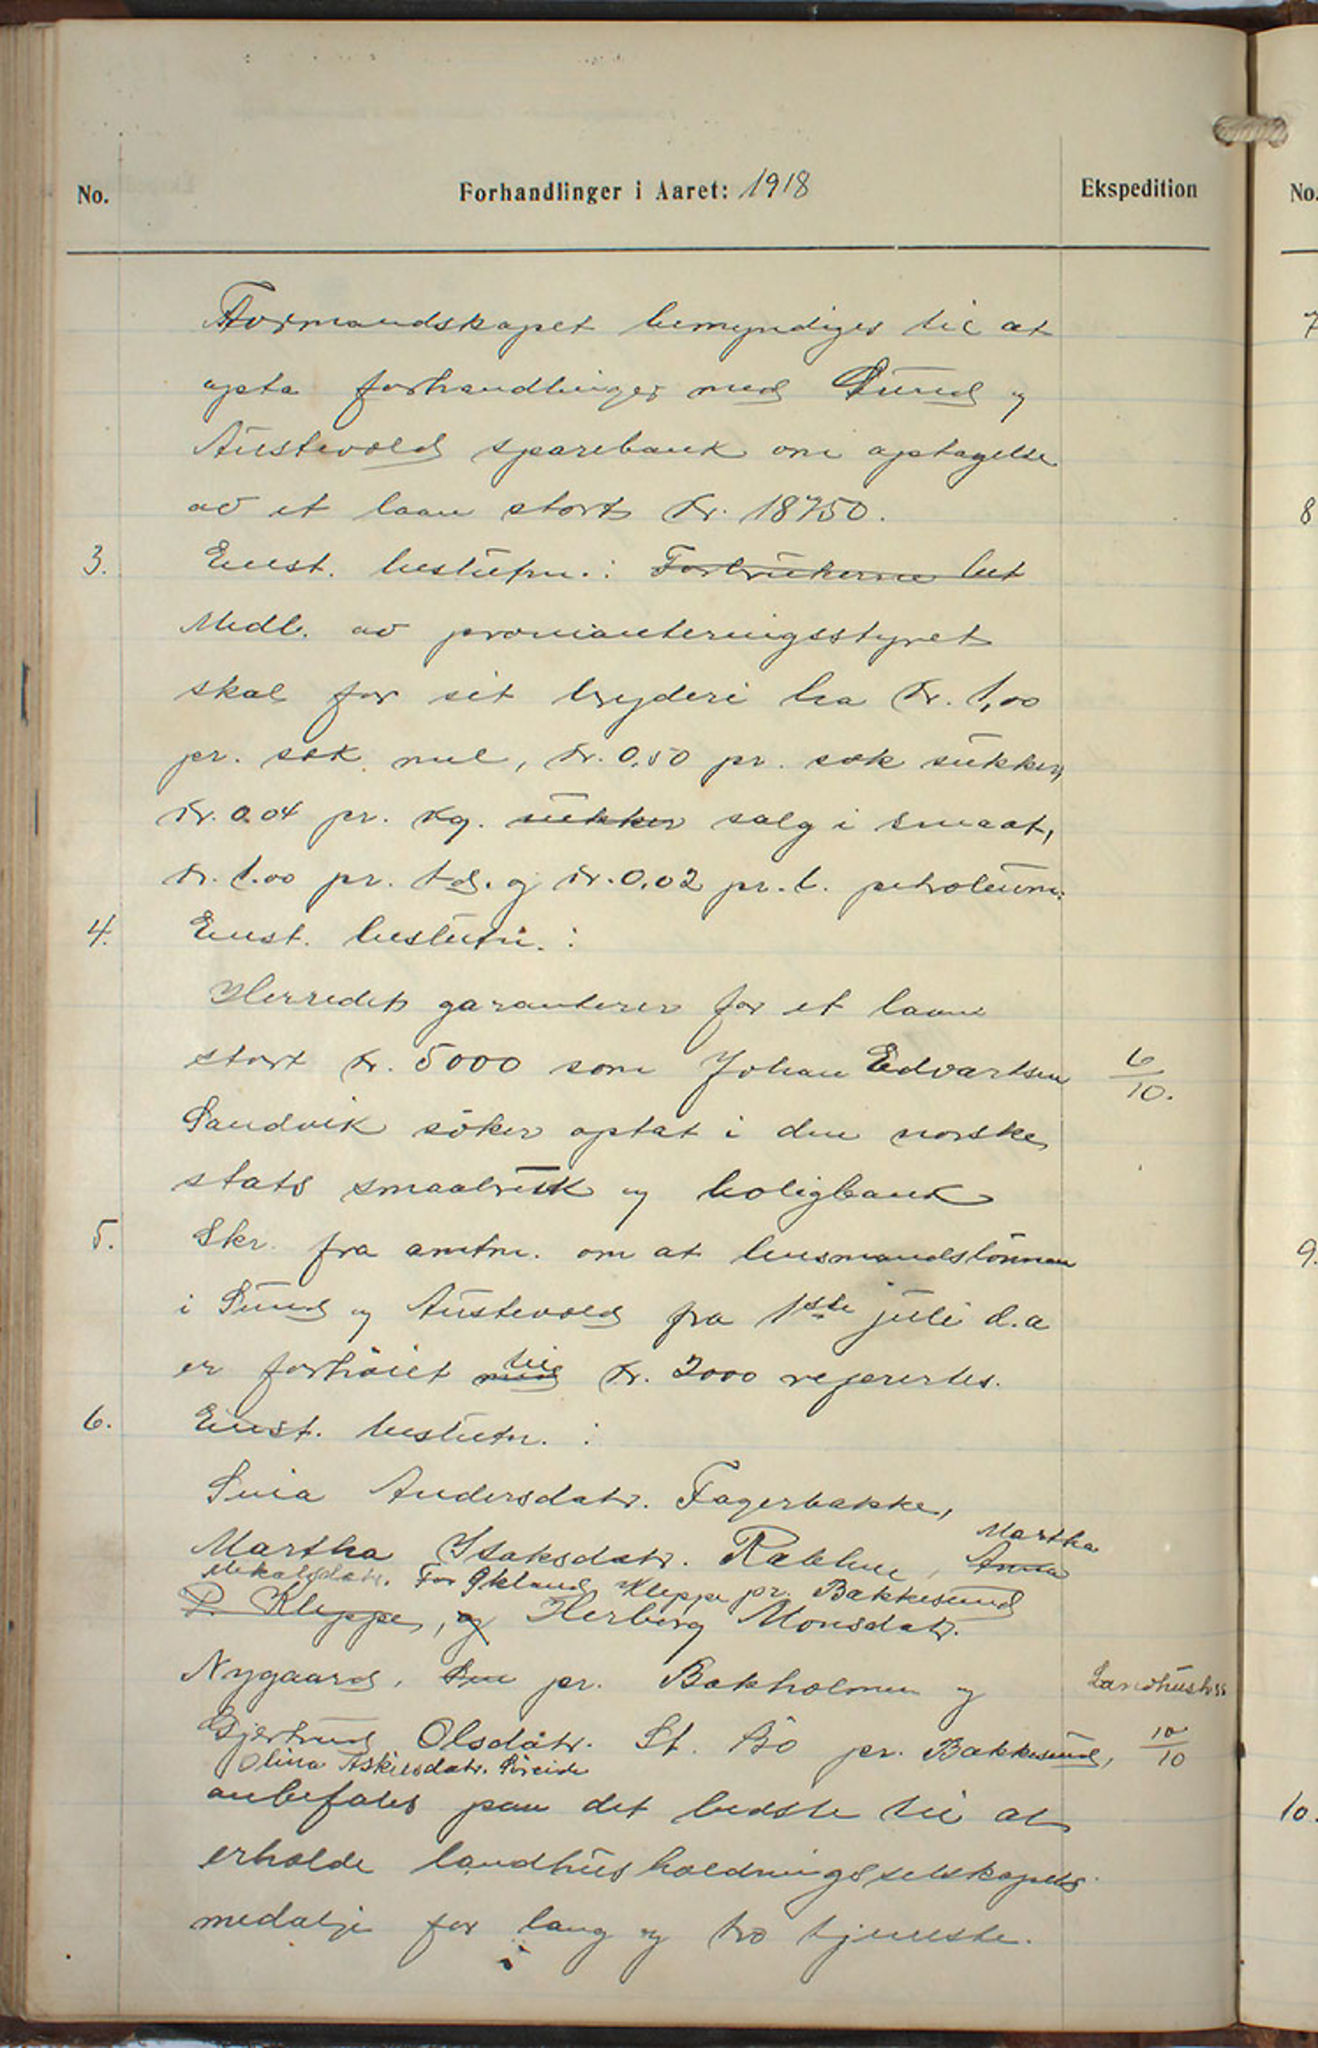 No. Forhandlinger i Aaret: 1918 Ekspedition No.
Formandskapet bemyndiges til at
opta forhandlinger med Sund og
Austevold sparebank om optagelse
av et laan stort kr. 18750.
3. Enst. beslutn.: Forbrukerne bet
Medl. av provianteringsstyret
skal for sit bryderi ha kr. 1,00
pr. sæk mel, kr. 0,50 pr. sæk sukker,
kr. 0.04 pr. kg. sukker salg i smaat,
kr. 1.00 pr. td. og kr. 0.02 pr. l. petroleum.
4. Enst. beslutn.:
Herredet garanterer for et laan
stort kr. 5000 som Johan Edvartsen 6/10.
Sandvik söker optat i den norske
stats smaabruk og boligbank
5. Skr. fra amtm. om at lensmandslönnen
i Sund og Austevold fra 1ste juli d.a
til
er forhöiet med kr. 2000 referertes.
6. Enst. beslutn.:
Sina Andersdatr. Fagerbakke,
Martha
Martha Isaksdatr. Rabben, Anna
Mikalsdatr. Kleppe pr. Bakkesund
P. Kleppe, og Herberg Monsdatr.
Nygaard, pr. Bakholmen og Landhushss
Gjertrud Olsdatr. St. Bö pr. Bakkesund, 10/10
Olina Askilsdatr. Söreide
anbefales paa det bedste til at
erholde landhusholdningsselskapets
medalje for lang og tro tjeneste.
7
8
9.
10.